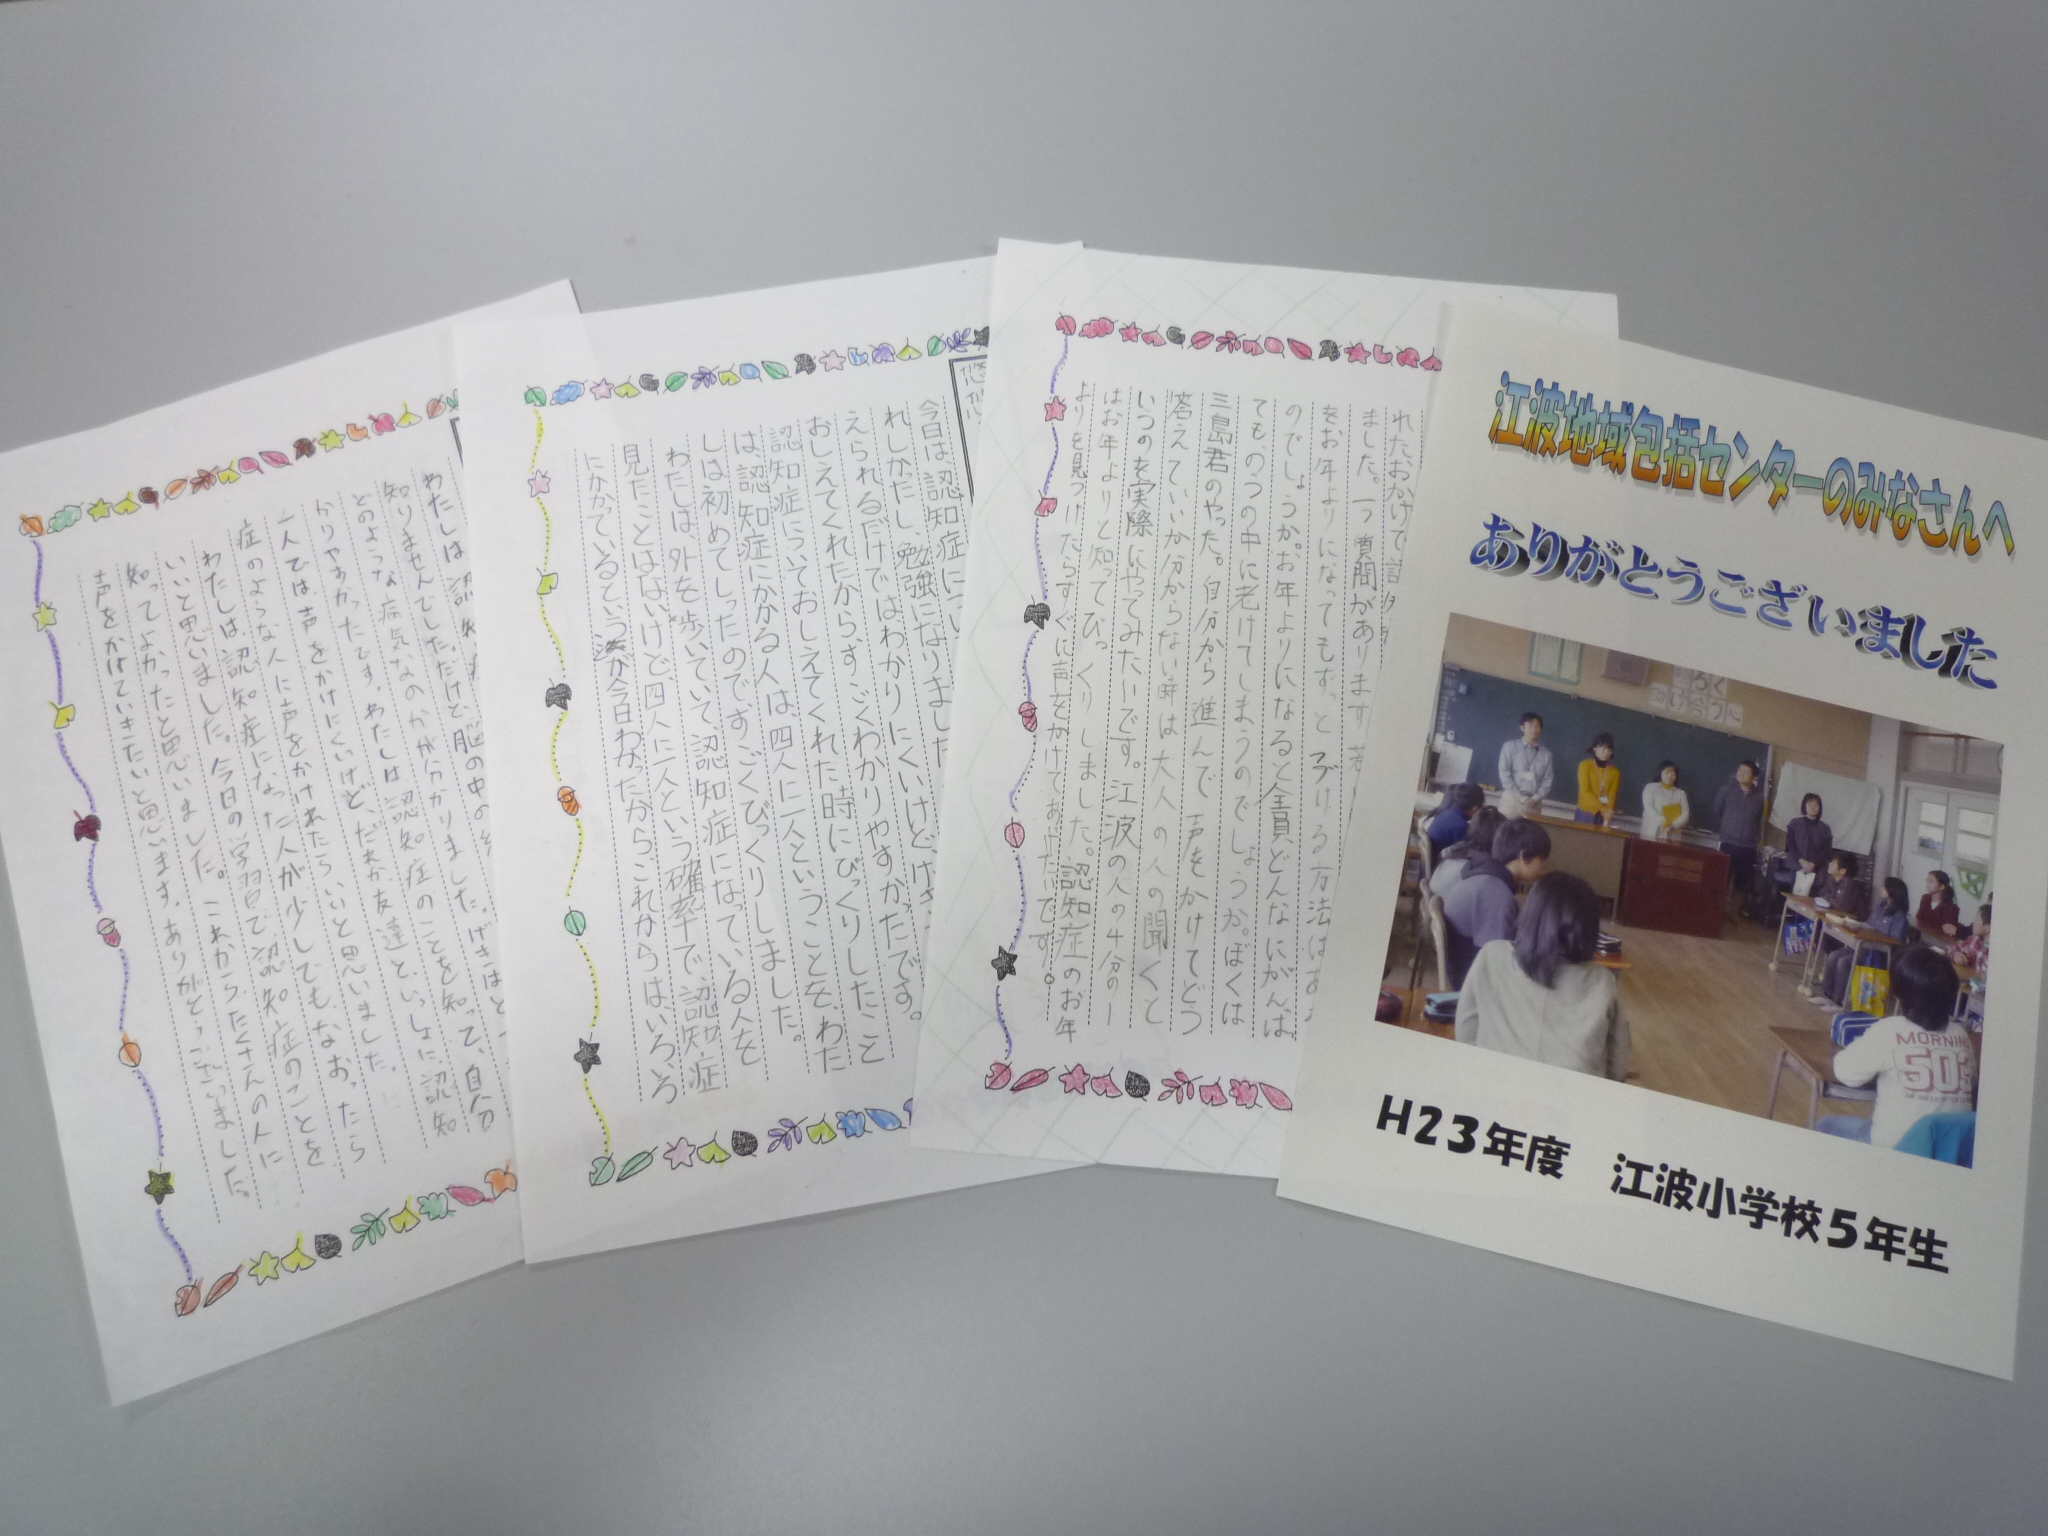 江波地域包括センターのみなさんへ
ありがとうございました
H23年度 江波小学校5年生
れたおかげで
ました。一つ質問があります。
をお年よりになってもずっと つづける方法は
のでしょうか。お年よりになると全員どんなにがんば
ても、のうの中に老けてしまうのでしょうか。ぼくは
三島君のやった。自分から進んで声をかけてどう
答えていいか分からない時は大人の人の聞くと
いうのを実際にやってみたいです。江波の人の4分の一
はお年よりと知ってびっくりしました。認知症のお年
よりを見つけたらすぐに声をかけてあげたいです。
今日は認知症につい
れしかったし、勉強になりました
えられるだけではわかりにくいけどげき
おしえてくれたから、すごくわかりやすかったです。
認知症についておしえてくれた時にびっくりしたこと
は、認知症にかかる人は、四人に一人ということを、わた
しは初めてしったのですごくびっくりしました。
わたしは、外を歩いていて、認知症になっている人を
見たことはないけど、四人に一人という確率で、認知症
にかかっているという が今日わかったからこれからは、いろいろ
わたしは 認知
知りませんでした。だけど、脳の中の
どのような病気なのかが分かりました。げきはと
かりやすかったです。わたしは、認知症のことを知って、自分
一人では、声をかけにくいけど、だれか友達と、いっしょに、認知
症のような人に声をかけれたらいいと思いました。
わたしは、認知症になった人が少しでも、なおったら
いいと思いました。今日の学習で認知症のことを
知ってよかったと思いました。これから、たくさんの人に
声をかけていきたいと思います。ありがとうございました。
MORNIN
503